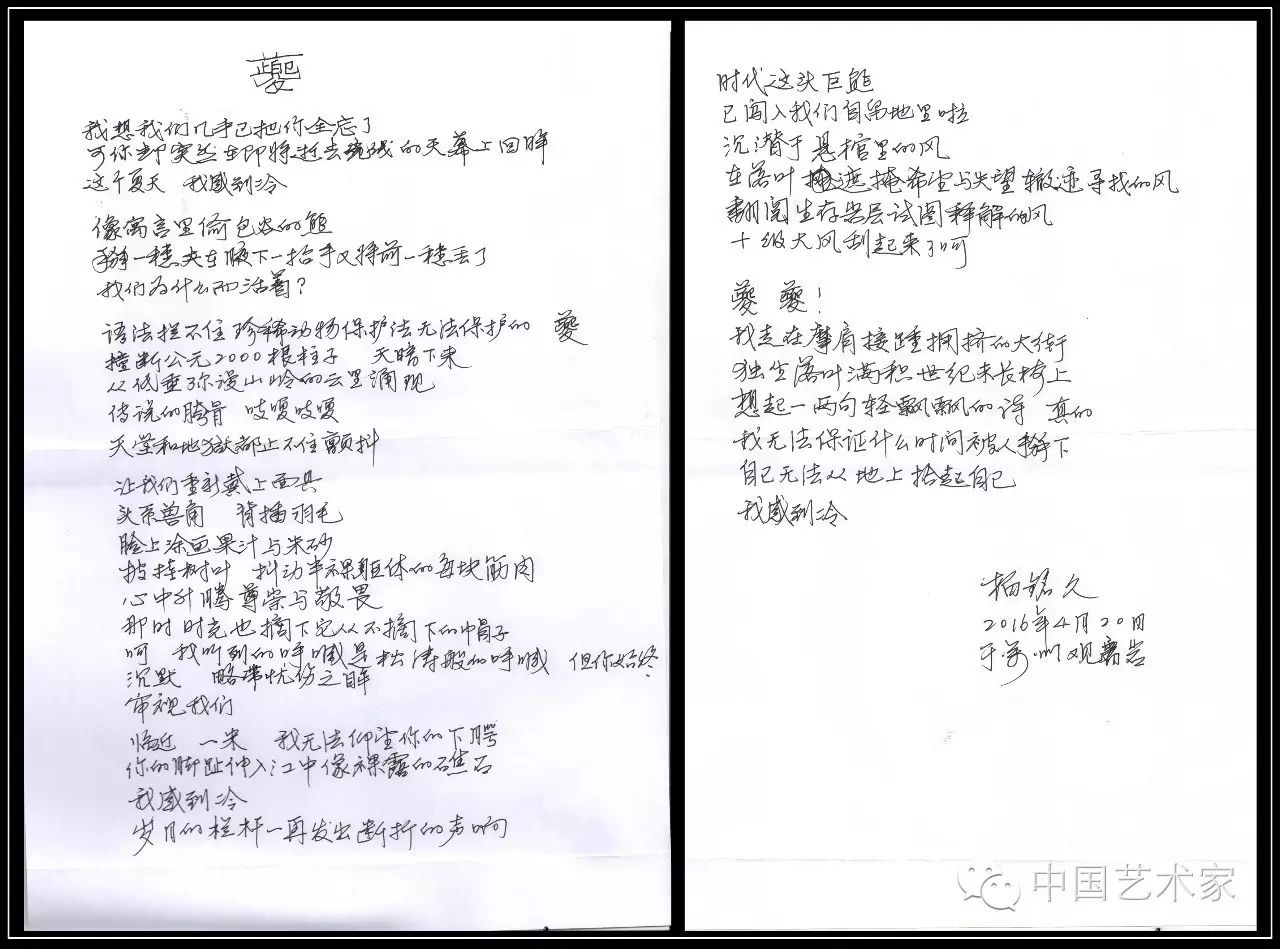 夔
我想我们几乎已把你全忘了
可你却突然在即将逝去的天幕上回眸
这个夏天 我感到冷
像寓言里偷包谷的熊
掰一穗夹在腋下一抬手又将前一穗丢了
我们为什么而活着?
语法拦不住珍稀动物保护法无法保护的 夔
撞断公元2000根柱子 天暗下来
从低垂弥漫山岭的云里涌现
传说的胯骨 吱嘎吱嘎
天堂和地狱都止不住颤抖
让我们重新戴上面具
头系兽角 背插羽毛
脸上涂画果汁与朱砂
披挂树叶 抖动半裸躯体的每块筋肉
心中升腾尊崇与敬畏
那时 时光也摘下它从不摘下的帽子
呵 我听到的呼喊是松涛般的呼喊 但你始终
沉默 略带忧伤之眸
审视我们
临近 一米 我无法仰望你的下腭
你的脚趾伸入江中像裸露的礁石
我感到冷
岁月的栏杆一再发出断折的声响
时代这头巨熊
已闯入我们自留地里啦
沉潜于悬棺里的风
在落叶遮掩希望与失望辙迹寻找的风
翻阅生存岩层试图释解的风
十级大风刮起来了呵
夔 夔!
我走在摩肩接踵拥挤的大街
独坐落叶满积世纪末长椅上
想起一两句轻飘飘的诗 真的
我无法保证什么时间被人掰下
自己无法从地上拾起自己
我感到冷
杨铭久
2016年4月20日
于万州观音岩
中国艺术家